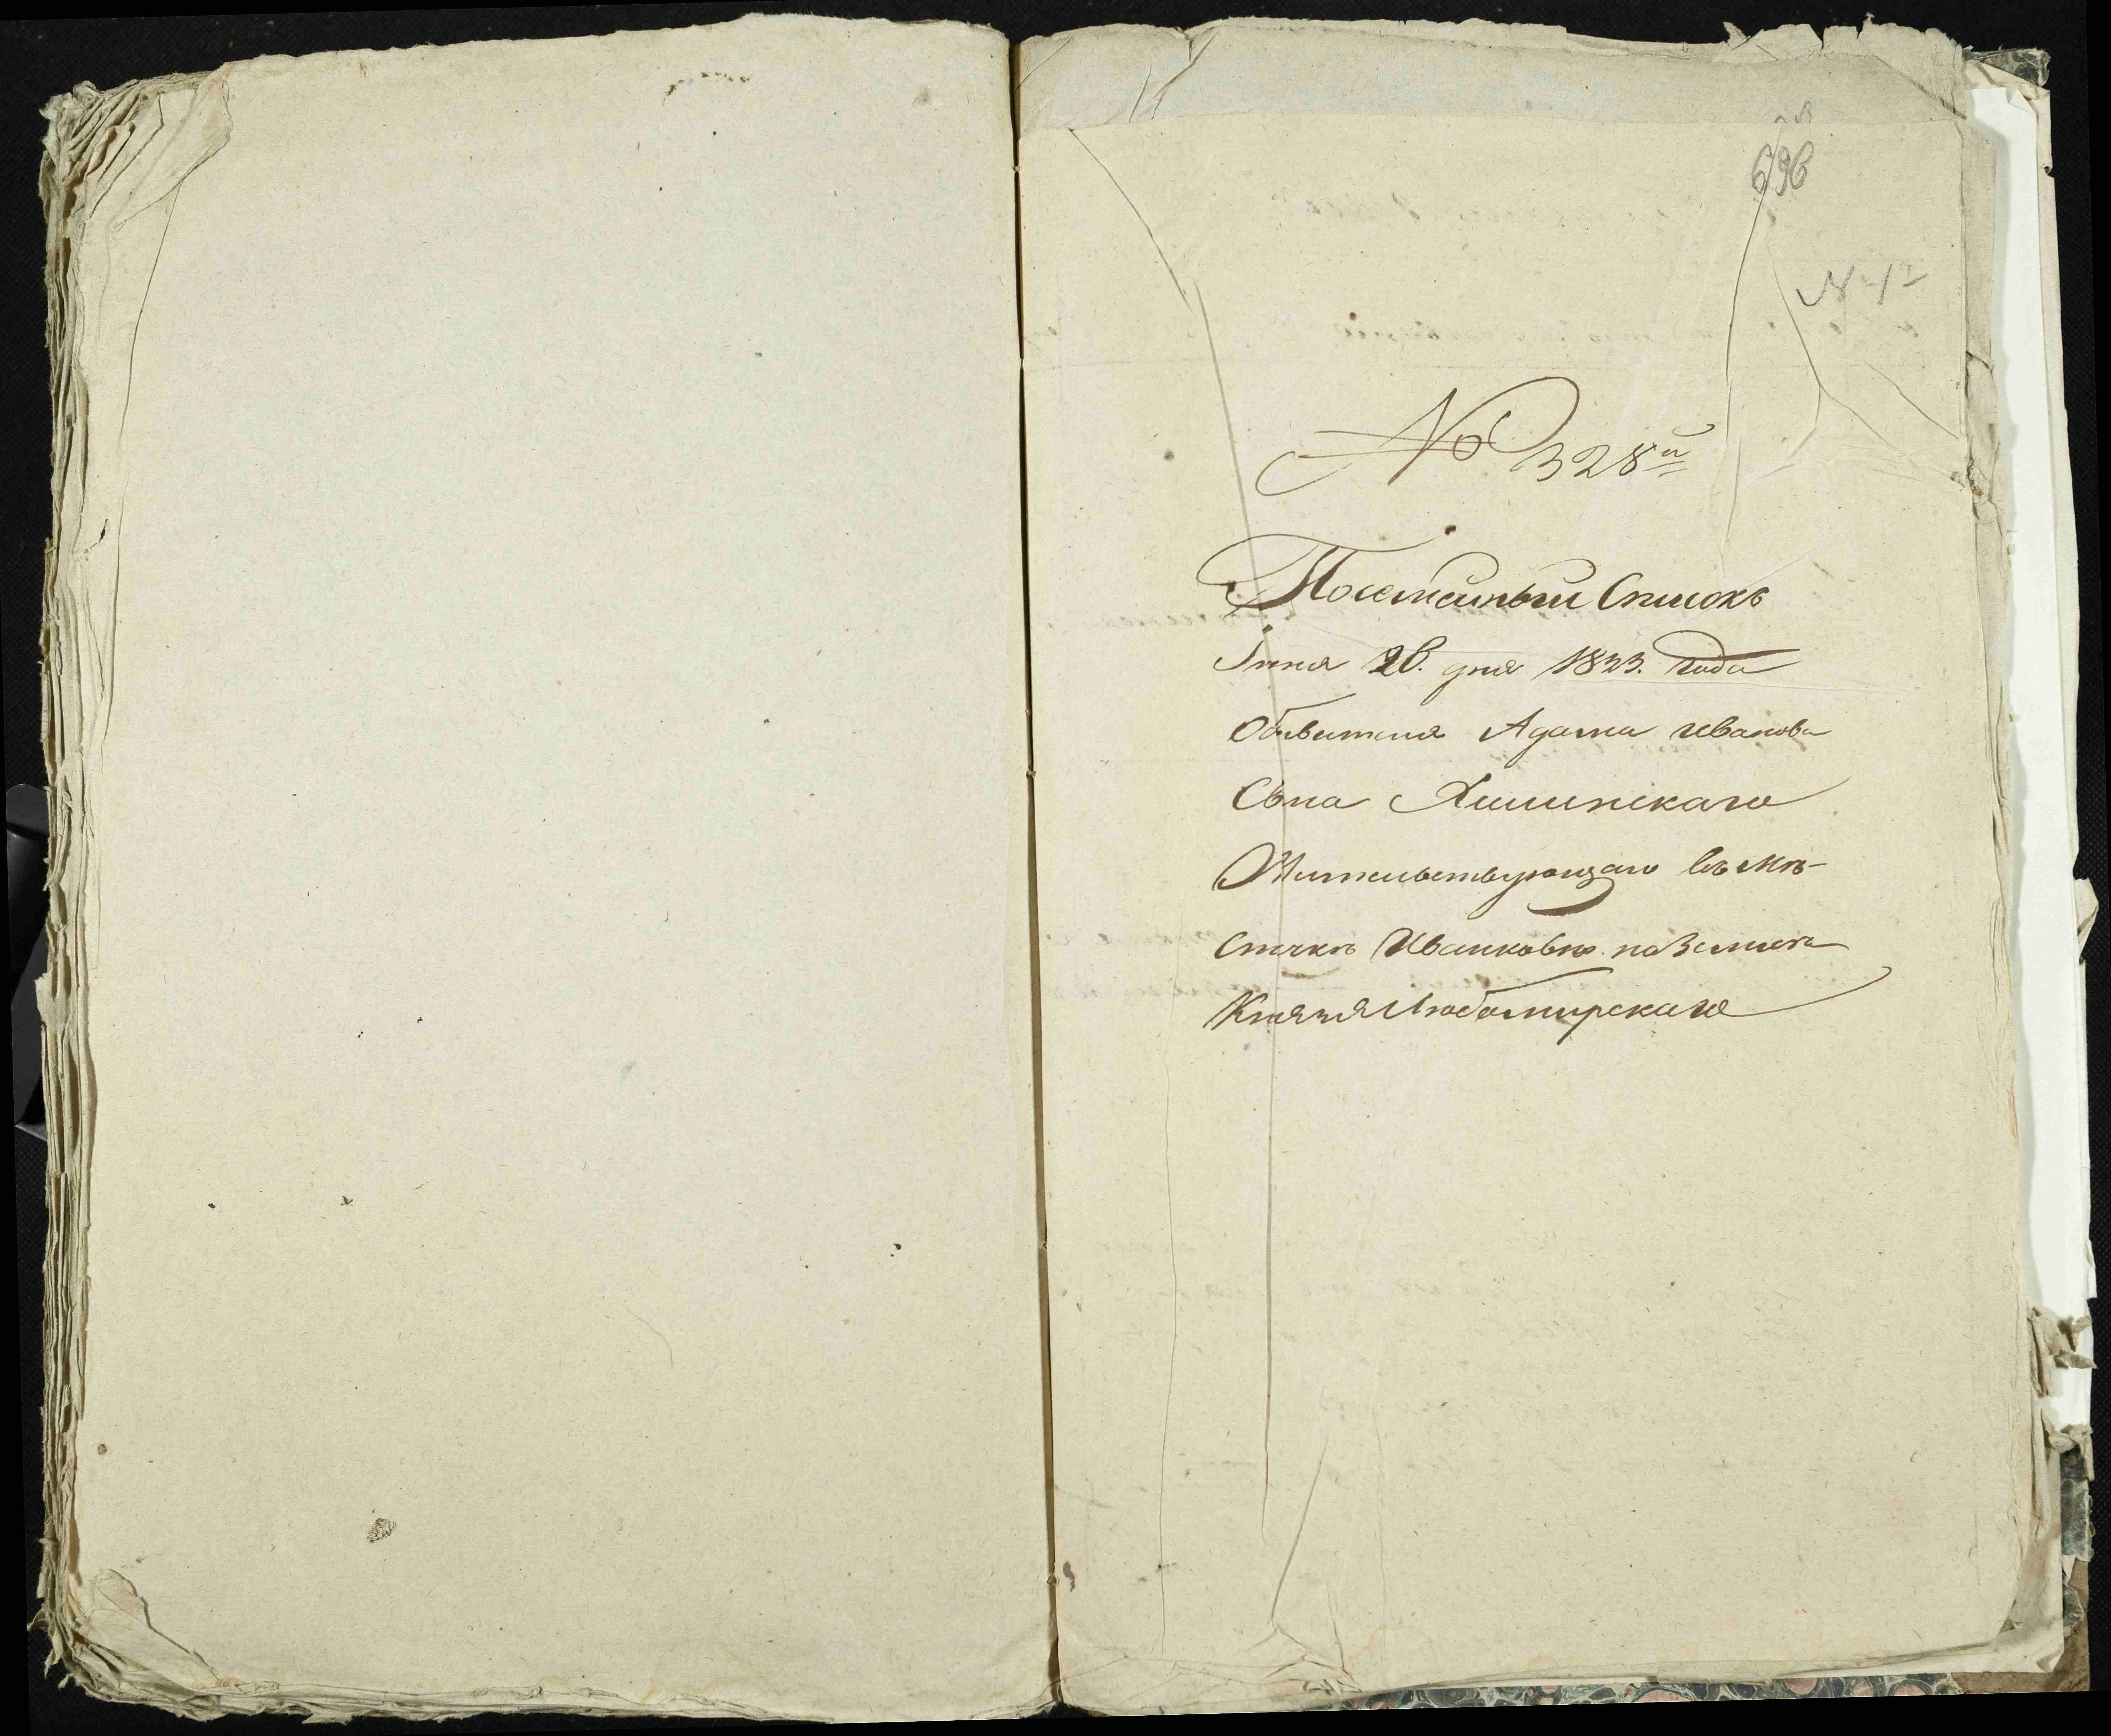 696
№ 1й
№ 328й
Посемейный Списокъ
Іюня 26. дня 1833. года
Обывателя Адама Иванова
Сына Хилинскаго
Жительствующаго въ мѣ-
стечкѣ Иванковѣ на Земле
Князя Любомирскаго